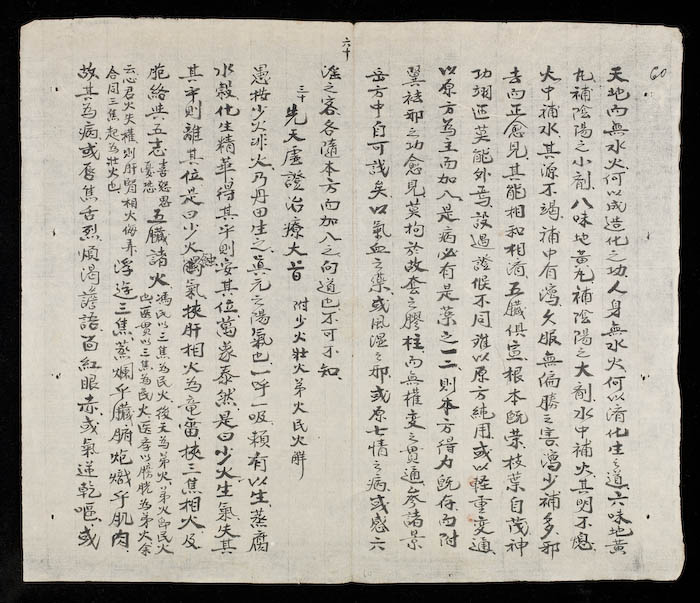 60
天地而無水火何以成造化之功人身無水火何以濟化生之道六味地黃
九補陰陽之小劑八味地黃九補陰陽之大劑水中補火其明不熄
火中補水其源不竭補中有瀉久服無偏勝之害瀉少補多邪
去而正愈見其能相和相濟五臟俱宣根本既榮枝葉自茂神
功迥迊莫能外焉設過證候不同难以原方純用或以輕重変通
以原方為主而加入是病必有是藥之一二則本方得力既存而附
翼祛邪之功愈見莫拘於故套之膠柱而無權变之貫通參諸景
岳方中自可識矣以氣血之藥或風濕之邪或原七情之病或感六
六十
淫之客各隨本方而加入之向道也不可不知
三十 先天虛證治療大旨 附少火壯火弟火民火辯
愚按少火非火乃丹田生之真元之陽氣也一呼一吸頼有以生蒸腐
水穀化生精華得其平則安其位萬象泰然是曰少火生氣失其
其平則離其位是曰少火觸氣挾肝相火為竜雷挾三焦相火及
胞絡與五志 喜怒思憂恐 五臟諸火 馮氏以三焦為民火後天為弟火弟火即民火
也医貫以三焦為民火医李以膀胱為弟火余
云心君火失權則肝腎相火侮弄
合同三焦起為壯火也 浮遊三焦蒸爛乎臟腑炮熾乎肌肉
故其為病或唇焦舌烈煩渴譫語面紅眼赤或氣逆乾嘔或